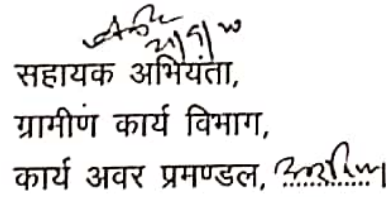 सहायक अभियंता,
ग्रामीण कार्य विभाग,
कार्य अवर प्रमण्डल, ..............।